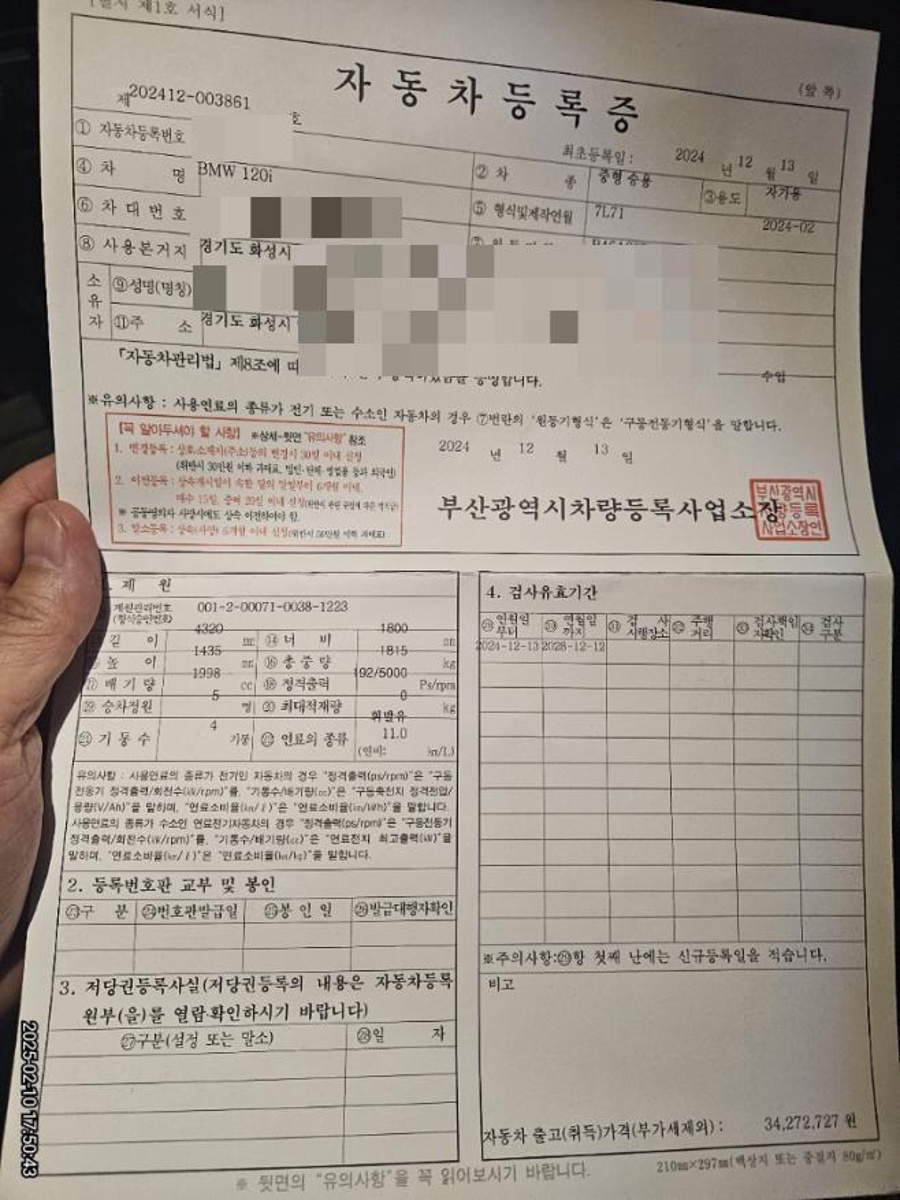 [별지 제1호 서식]
(앞 쪽)
자동차등록증
제202412-003861 호
최초등록일 : 2024 년 12 월 13 일
① 자동차등록번호 ② 차 종 중형 승용 ③용도 자가용
④ 차 명 BMW 120i ⑤ 형식및제작연월 7L71 2024-02
⑥ 차 대 번 호
⑧ 사용본거지 경기도 화성시
소유자 ⑨성명(명칭)
⑪주 소 경기도 화성시
「자동차관리법」 제8조에 따
수입
※유의사항 : 사용연료의 종류가 전기 또는 수소인 자동차의 경우 ⑦번란의 '원동기형식'은 '구동전동기형식'을 말합니다.
[꼭 알아두셔야 할 사항] ※상세-뒷면 "유의사항" 참조
1. 변경등록 : 상호소재지(주소)등의 변경시 30일 이내 신청
2. 이전등록 : 상속개시일이 속한 달의 말일부터 6개월 이내,
매수 15일, 증여 20일 이내 신청
※ 공동명의자 사망시에도 상속 이전하여야 함.
3. 말소등록 : 상속(사망) 6개월 이내 신청
2024 년 12 월 13 일
부산광역시차량등록사업소장
부산광역시
차량등록
사업소장인
1. 제 원
제원관리번호 001-2-00071-0038-1223
(형식승인번호)
길 이 4320 mm ⑭ 너 비 1800 mm
높 이 1435 mm ⑯ 총 중 량 1815 kg
⑰ 배 기 량 1998 cc ⑱ 정격출력 192/5000 Ps/rpm
승차정원 5 명 ⑳ 최대적재량 0 kg
㉑ 기 통 수 4 기통 ㉒ 연료의 종류 휘발유
(연비: 11.0 ㎞/L)
유의사항 : 사용연료의 종류가 전기인 자동차의 경우 "정격출력(ps/rpm)"은 "구동
전동기 정격출력/회전수(㎾/rpm)"를, "기통수/배기량(cc)"은 "구동축전지 정격전압/
용량(V/Ah)"을 말하며, "연료소비율(㎞/ℓ)"은 "연료소비율(㎞/㎾h)"을 말합니다.
사용연료의 종류가 수소인 연료전지자동차의 경우 "정격출력(ps/rpm)"은 "구동전동기
정격출력/회전수(㎾/rpm)"를, "기통수/배기량(cc)"은 "연료전지 최고출력(㎾)"을
말하며, "연료소비율(㎞/ℓ)"은 "연료소비율(㎞/㎏)"을 말합니다.
2. 등록번호판 교부 및 봉인
㉓구 분 ㉔번호판발급일 ㉕봉 인 일 ㉖발급대행자확인
3. 저당권등록사실(저당권등록의 내용은 자동차등록
원부(을)를 열람·확인하시기 바랍니다)
㉗구분(설정 또는 말소) ㉘일 자
4. 검사유효기간
㉙연월일부터 ㉚연월일까지 ㉛검사시행장소 ㉜주행거리 ㉝검사책임자확인 ㉞검사구분
2024-12-13 2028-12-12
※주의사항:㉙항 첫째 난에는 신규등록일을 적습니다.
비고
자동차 출고(취득)가격(부가세제외) : 34,272,727 원
※ 뒷면의 "유의사항"을 꼭 읽어보시기 바랍니다.
210㎜×297㎜(백상지 또는 중질지 80g/㎡)
2025-02-10 17:50:43